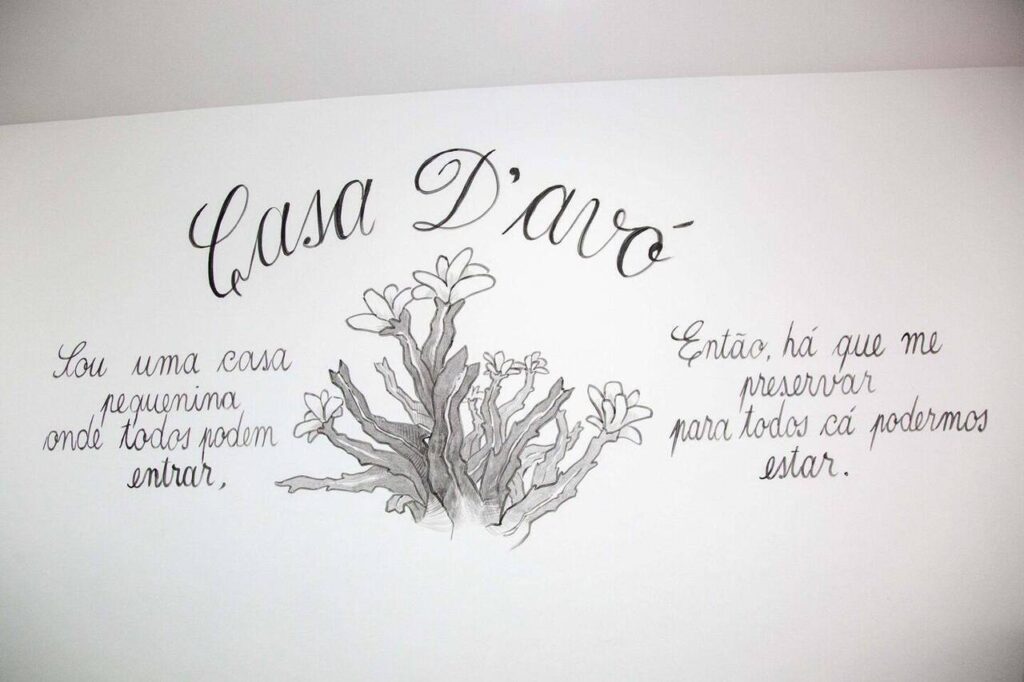 Casa D'avó
Sou uma casa
pequenina
onde todos podem
entrar,
Então, há que me
preservar
para todos cá podermos
estar.